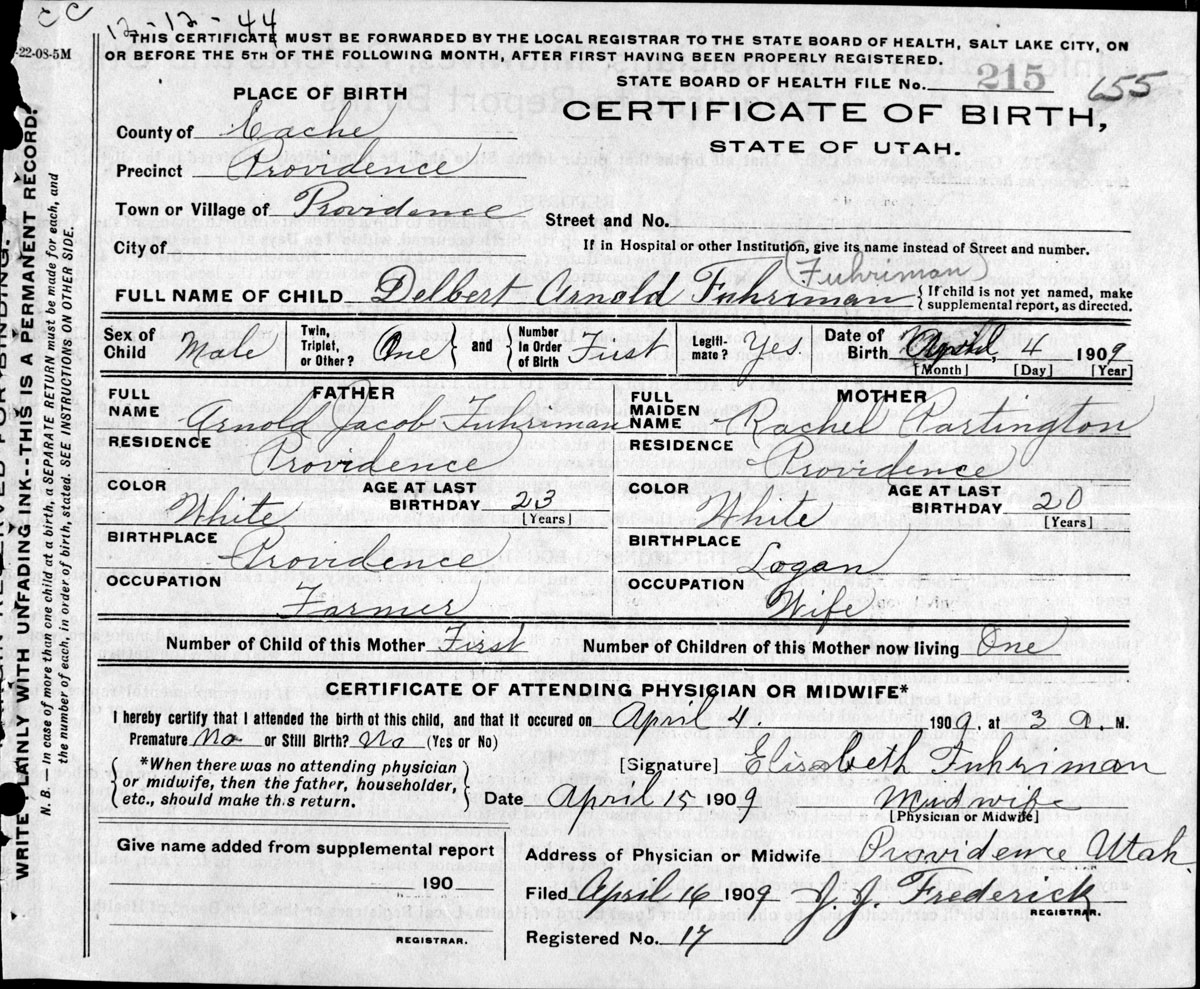 C C
12-12-44
-22-08-5M
THIS CERTIFICATE MUST BE FORWARDED BY THE LOCAL REGISTRAR TO THE STATE BOARD OF HEALTH, SALT LAKE CITY, ON
OR BEFORE THE 5TH OF THE FOLLOWING MONTH, AFTER FIRST HAVING BEEN PROPERLY REGISTERED.
STATE BOARD OF HEALTH FILE No. 215 655
PLACE OF BIRTH
CERTIFICATE OF BIRTH,
STATE OF UTAH.
County of Cache
Precinct Providence
Town or Village of Providence
Street and No.
City of
If in Hospital or other Institution, give its name instead of Street and number.
Fuhriman
FULL NAME OF CHILD Delbert Arnold Fuhriman { If child is not yet named, make
supplemental report, as directed.
Sex of Child Male Twin, Triplet, or Other? One } and { Number in Order of Birth First Legiti-mate? Yes Date of Birth April 4 1909
[Month] [Day] [Year]
FATHER
FULL NAME Arnold Jacob Fuhriman
RESIDENCE Providence
COLOR White AGE AT LAST BIRTHDAY 23 [Years]
BIRTHPLACE Providence
OCCUPATION Farmer
MOTHER
FULL MAIDEN NAME Rachel Partington
RESIDENCE Providence
COLOR White AGE AT LAST BIRTHDAY 20 [Years]
BIRTHPLACE Logan
OCCUPATION Wife
Number of Child of this Mother First Number of Children of this Mother now living One
CERTIFICATE OF ATTENDING PHYSICIAN OR MIDWIFE*
I hereby certify that I attended the birth of this child, and that it occured on April 4. 1909, at 3 a. M.
Premature No or Still Birth? No (Yes or No)
{ *When there was no attending physician
or midwife, then the father, householder,
etc., should make this return. }
[Signature] Elisabeth Fuhriman
Date April 15 1909 Mudwife
[Physician or Midwife]
Give name added from supplemental report
190
REGISTRAR.
Address of Physician or Midwife Providence Utah
Filed April 16 1909 J. J. Frederick
REGISTRAR.
Registered No. 17
WRITE PLAINLY WITH UNFADING INK--THIS IS A PERMANENT RECORD.
N. B.—In case of more than one child at a birth, a SEPARATE RETURN must be made for each, and
the number of each, in order of birth, stated. SEE INSTRUCTIONS ON OTHER SIDE.